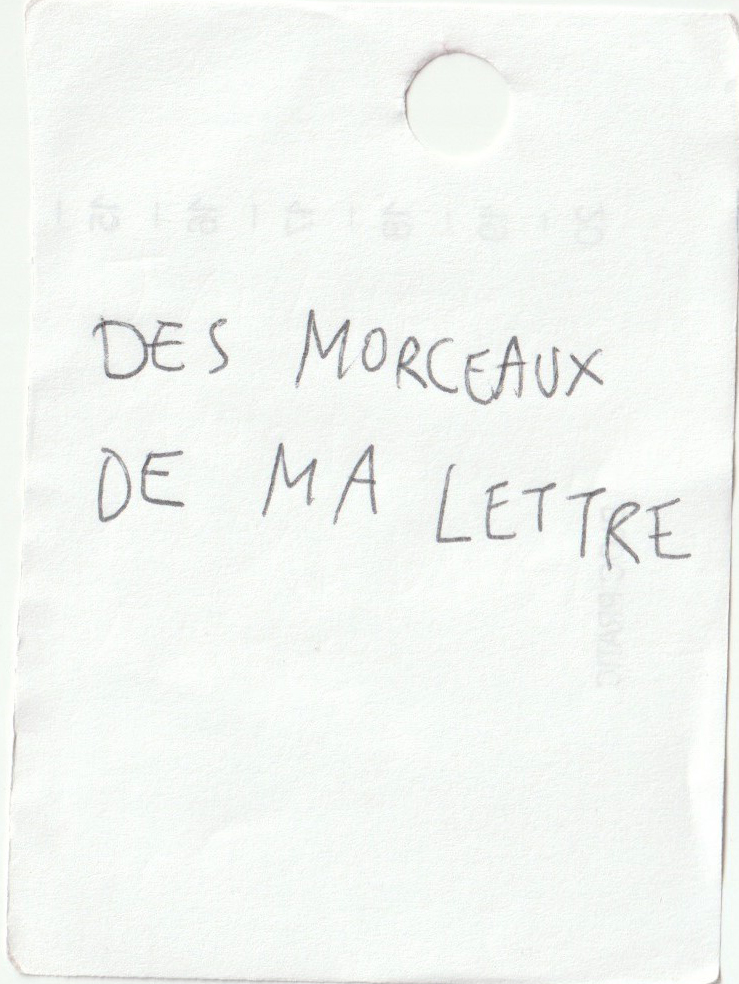 DES MORCEAUX
DE MA LETTRE